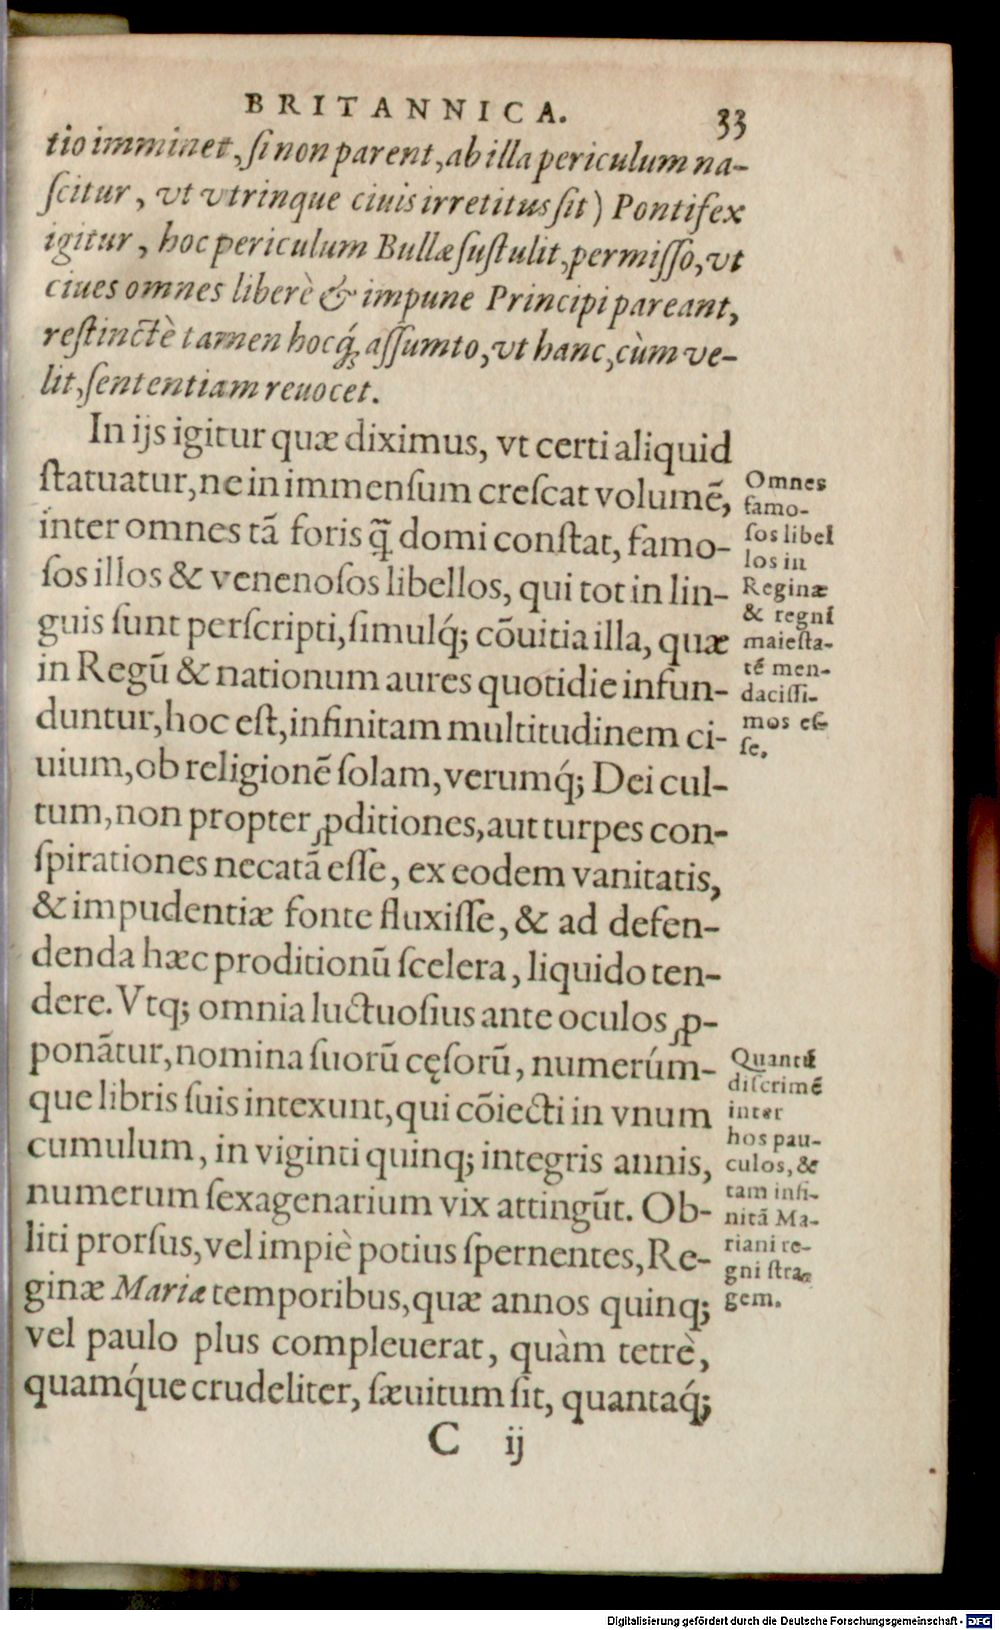 BRITANNICA. 33
tio imminet, ſi non parent, ab illa periculum na-
ſcitur, vt vtrinque ciuis irretitus ſit) Pontifex
igitur, hoc periculum Bullæ ſuſtulit, permiſſo, vt
ciues omnes liberè & impune Principi pareant,
reſtinctè tamen hocq́; aſſumto, vt hanc, cùm ve-
lit, ſententiam reuocet.
In ijs igitur quæ diximus, vt certi aliquid
ſtatuatur, ne in immenſum creſcat volumē,
inter omnes tā foris q̄ domi conſtat, famo-
ſos illos & venenoſos libellos, qui tot in lin-
guis ſunt perſcripti, ſimulq́; cōuitia illa, quæ
in Regū & nationum aures quotidie infun-
duntur, hoc eſt, infinitam multitudinem ci-
uium, ob religionē ſolam, verumq́; Dei cul-
tum, non propter ꝓditiones, aut turpes con-
ſpirationes necatā eſſe, ex eodem vanitatis,
& impudentiæ fonte fluxiſſe, & ad defen-
denda hæc proditionū ſcelera, liquido ten-
dere. Vtq; omnia luctuoſius ante oculos ꝓ-
ponātur, nomina ſuorū cęſorū, numerúm-
que libris ſuis intexunt, qui cōiecti in vnum
cumulum, in viginti quinq; integris annis,
numerum ſexagenarium vix attingūt. Ob-
liti prorſus, vel impiè potius ſpernentes, Re-
ginæ Mariæ temporibus, quæ annos quinq;
vel paulo plus compleuerat, quàm tetrè,
quamq́ue crudeliter, ſæuitum ſit, quantaq́;
C ij
Omnes
famo-
ſos libel
los in
Reginæ
& regni
maieſta-
tē men-
daciſſi-
mos eſ-
ſe.
Quantū
diſcrimē
inter
hos pau-
culos, &
tam infi-
nitā Ma-
riani re-
gni ſtra-
gem.
Digitalisierung gefördert durch die Deutsche Forschungsgemeinschaft - DFG